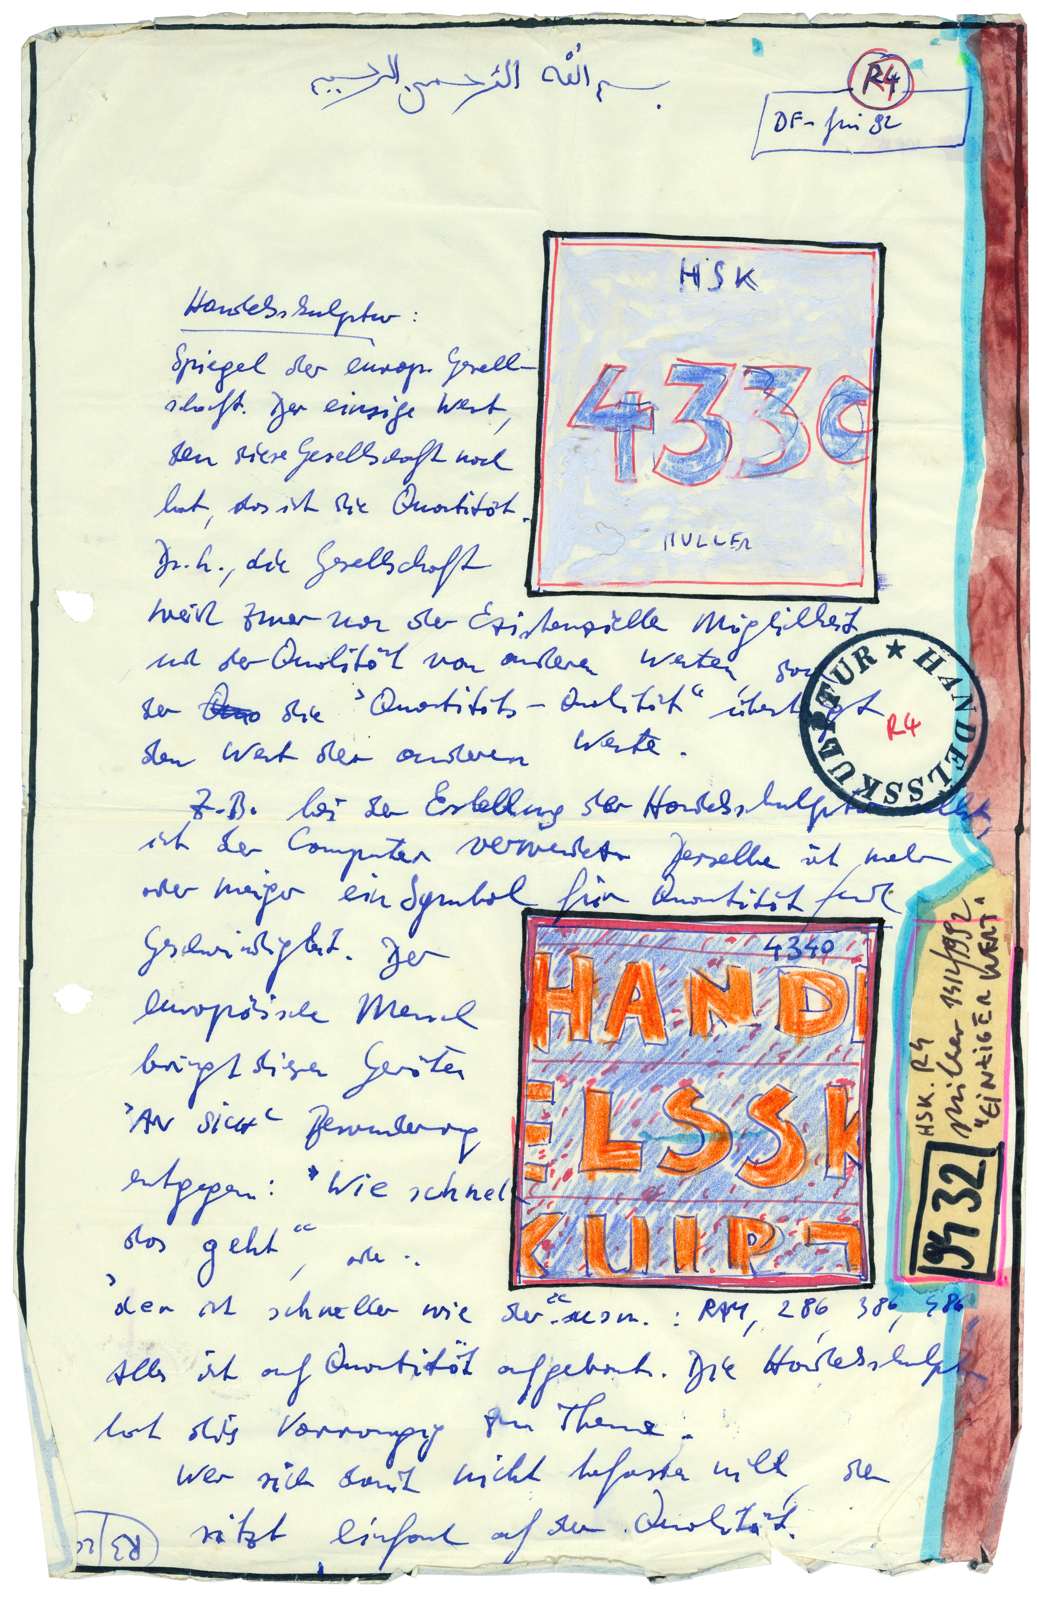 بسم الله الرحمن الرحيم
R4
DF- Juni 92
HSK
4330
MULLER
Handelsskulptur:
Spiegel der europ. Gesell-
schaft. Der einzige Wert,
den diese Gesellschaft noch
hat, das ist die Quantität.
D.h., die Gesellschaft
weiß zwar von der Existenzielle Möglichkeit
und der Qualität von anderen Werten,
der die "Quantitäts-Qualität" übersteigt
den Wert der anderen Werte.
HANDELSSKULPTUR ★
R4
Z.B. bei der Erstellung der Handelsskulptur selbst
ist der Computer verwendet. Derselbe ist mehr
oder weniger ein Symbol für Quantität und
Geschwindigkeit. Der
europäische Mensch
bringt diesen Geräten
"AN SICH" Bewunderung
entgegen: "Wie schnell
das geht", oder:
4340
HANDE
ELSSK
KULPT
HSK. R4
Müller 1992
"EINZIGER WERT"
9432
"der ist schneller wie der" usw.: RAM, 286, 386, 486,
Alles ist auf Quantität aufgebaut. Die Handelsskulpt
hat dies Vorrangig zum Thema.
Wer sich damit nicht befassen will, der
sitzt einfach auf der Qualität.
R3